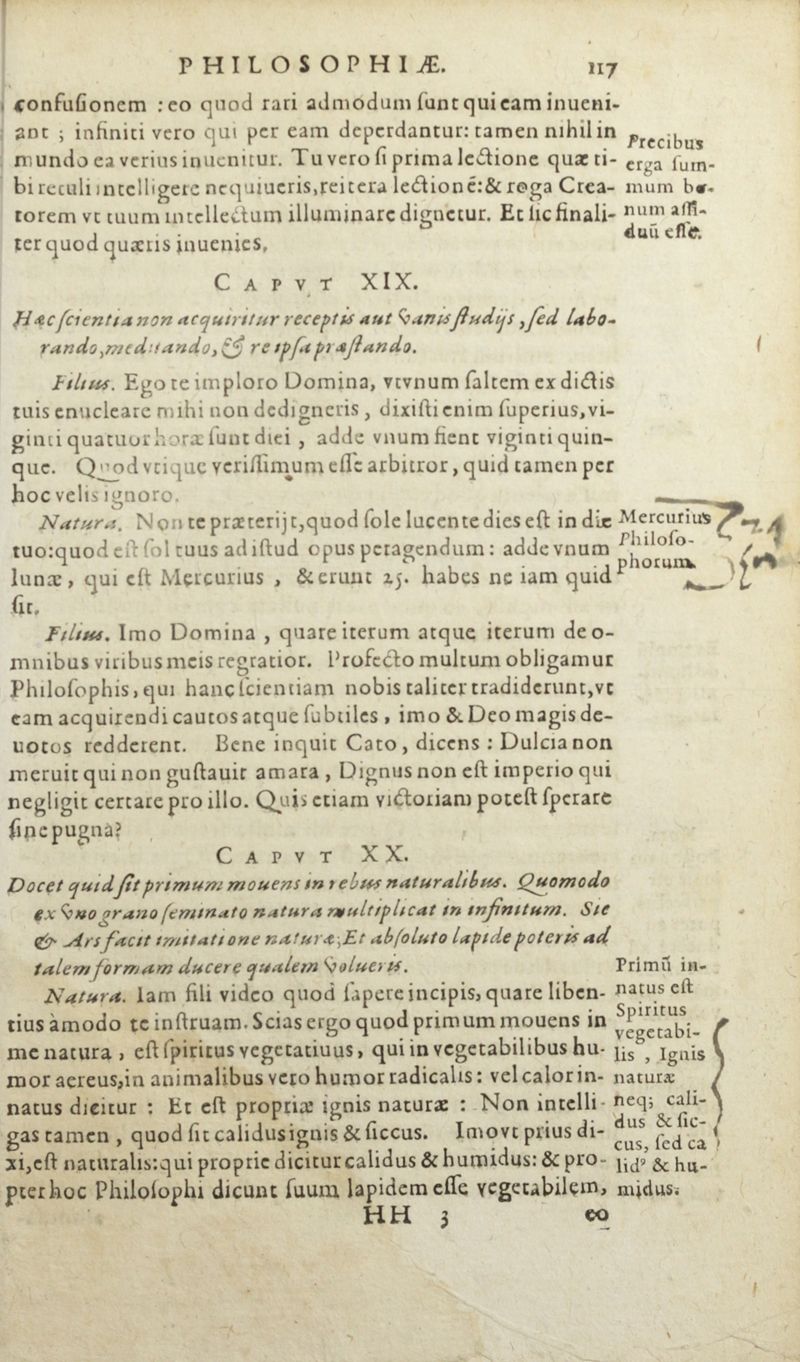 PHILOSOPHIÆ. 117
confuſionem : eo quod rari admodum ſunt qui eam inueni-
ant ; infiniti vero qui per eam deperdantur: tamen nihil in
mundo ea verius inuenitur. Tu vero ſi prima lectione quæ ti-
bi retuli intelligere nequiueris, reitera lectionē: & roga Crea-
torem vt tuum intellectum illuminare dignetur. Et ſic finali-
ter quod quæris inuenies.
Precibus
erga ſum-
mum bo-
num aſſi-
duū eſſe.
CAPVT XIX.
Hæc ſcientia non acquiritur receptis aut vanis ſtudijs, ſed labo-
rando, meditando, & re ipſa præſtando.
Filius. Ego te imploro Domina, vt vnum ſaltem ex dictis
tuis enucleare mihi non dedigneris, dixiſti enim ſuperius, vi-
ginti quatuor horæ ſunt diei, adde vnum fient viginti quin-
que. Quod vtique veriſſimum eſſe arbitror, quid tamen per
hoc velis ignoro.
Natura. Non te præterijt, quod ſole lucente dies eſt in die
tuo: quod eſt ſol tuus ad iſtud opus peragendum: adde vnum
lunæ, qui eſt Mercurius, & erunt 25. habes ne iam quid
ſit.
Mercurius
Philoſo-
phorum.
Filius. Imo Domina, quare iterum atque iterum de o-
mnibus viribus meis regratior. Profecto multum obligamur
Philoſophis, qui hanc ſcientiam nobis taliter tradiderunt, vt
eam acquirendi cautos atque ſubtiles, imo & Deo magis de-
uotos redderent. Bene inquit Cato, dicens : Dulcia non
meruit qui non guſtauit amara, Dignus non eſt imperio qui
negligit certare pro illo. Quis etiam victoriam poteſt ſperare
ſine pugna?
CAPVT XX.
Docet quid ſit primum mouens in rebus naturalibus. Quomodo
ex vno grano ſeminato natura multiplicat in infinitum. Sic
& Ars facit imitatione naturæ; Et abſoluto lapide poteris ad
talem formam ducere qualem volueris.
Natura. Iam fili video quod ſapere incipis, quare liben-
tius àmodo te inſtruam. Scias ergo quod primum mouens in
me natura, eſt ſpiritus vegetatiuus, qui in vegetabilibus hu-
mor aereus, in animalibus vero humor radicalis: vel calor in-
natus dicitur : Et eſt propriæ ignis naturæ : Non intelli-
gas tamen, quod ſit calidus ignis & ſiccus. Imo vt prius di-
xi, eſt naturalis: qui proprie dicitur calidus & humidus: & pro-
pter hoc Philoſophi dicunt ſuum lapidem eſſe vegetabilem,
Primū in-
natus eſt
Spiritus
vegetabi-
lis, Ignis
naturæ
neq; cali-
dus & ſic-
cus, ſed ca
lidꝰ & hu-
midus.
HH 3 eo